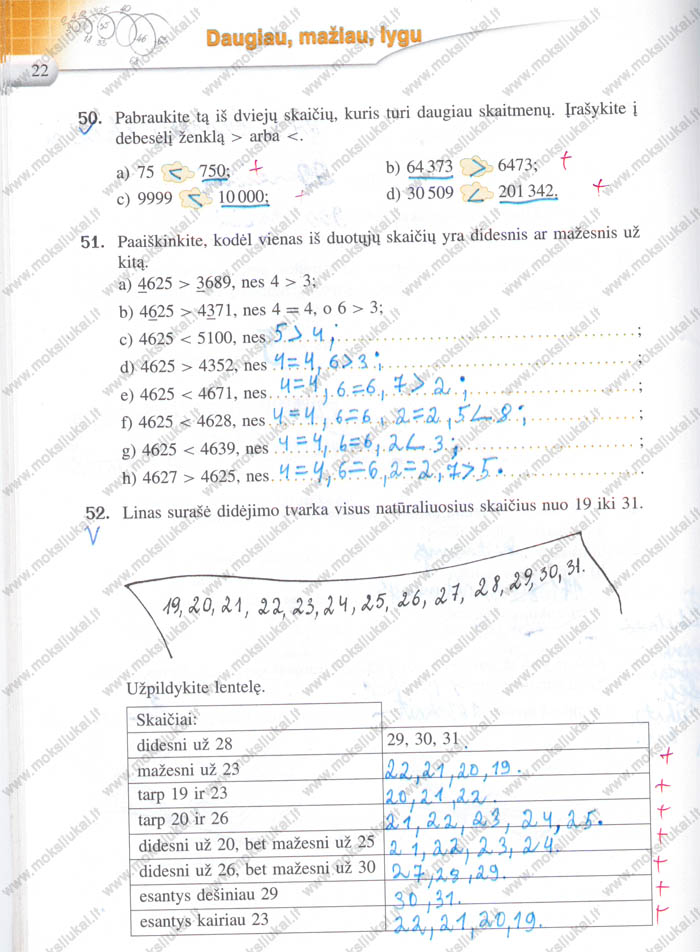 Daugiau, mažiau, lygu
22
50. Pabraukite tą iš dviejų skaičių, kuris turi daugiau skaitmenų. Įrašykite į
debesėlį ženklą > arba <.
a) 75 < 750; +
b) 64 373 > 6473; +
c) 9999 < 10 000;
d) 30 509 < 201 342. +
51. Paaiškinkite, kodėl vienas iš duotųjų skaičių yra didesnis ar mažesnis už
kitą.
a) 4625 > 3689, nes 4 > 3;
b) 4625 > 4371, nes 4 = 4, o 6 > 3;
c) 4625 < 5100, nes 5 > 4; ;
d) 4625 > 4352, nes 4 = 4, 6 > 3; ;
e) 4625 < 4671, nes 4 = 4, 6 = 6, 7 > 2; ;
f) 4625 < 4628, nes 4 = 4, 6 = 6, 2 = 2, 5 < 8; ;
g) 4625 < 4639, nes 4 = 4, 6 = 6, 2 < 3; ;
h) 4627 > 4625, nes 4 = 4, 6 = 6, 2 = 2, 7 > 5.
52. Linas surašė didėjimo tvarka visus natūraliuosius skaičius nuo 19 iki 31.
V
19, 20, 21, 22, 23, 24, 25, 26, 27, 28, 29, 30, 31.
Užpildykite lentelę.
Skaičiai:
didesni už 28 29, 30, 31.
mažesni už 23 22, 21, 20, 19. +
tarp 19 ir 23 20, 21, 22. +
tarp 20 ir 26 21, 22, 23, 24, 25. +
didesni už 20, bet mažesni už 25 21, 22, 23, 24. +
didesni už 26, bet mažesni už 30 27, 28, 29. +
esantys dešiniau 29 30, 31. +
esantys kairiau 23 22, 21, 20, 19. +
www.moksliukai.lt